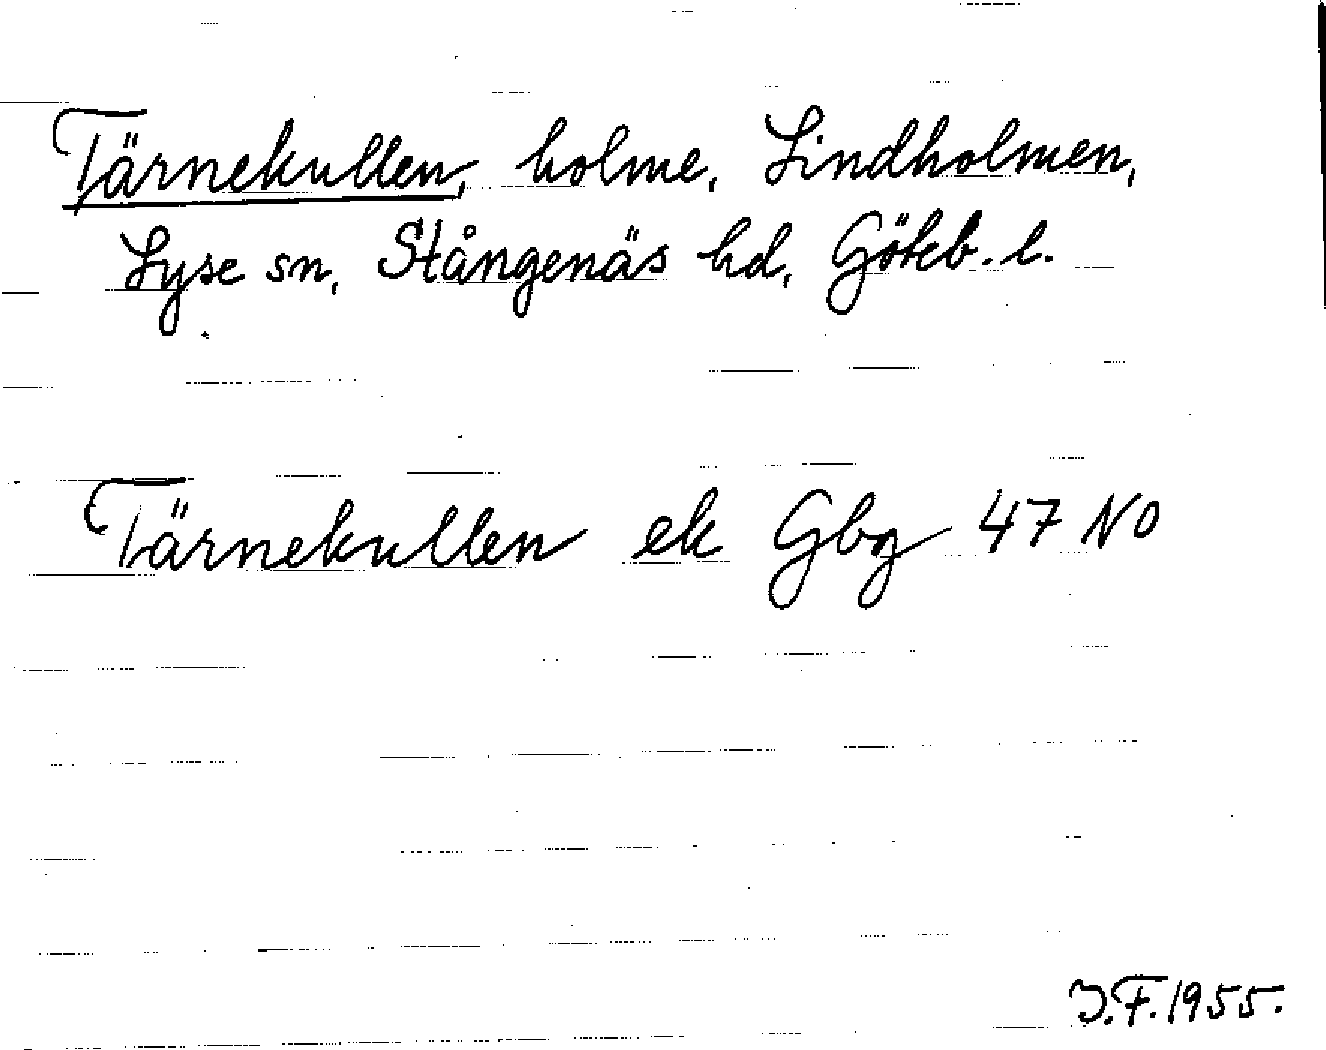 Tärnekullen, holme, Lindholmen,
Lyse sn, Stångenäs hd, Göteb. l.
Tärnekullen ek Gbg 47 NO
J.F. 1955.